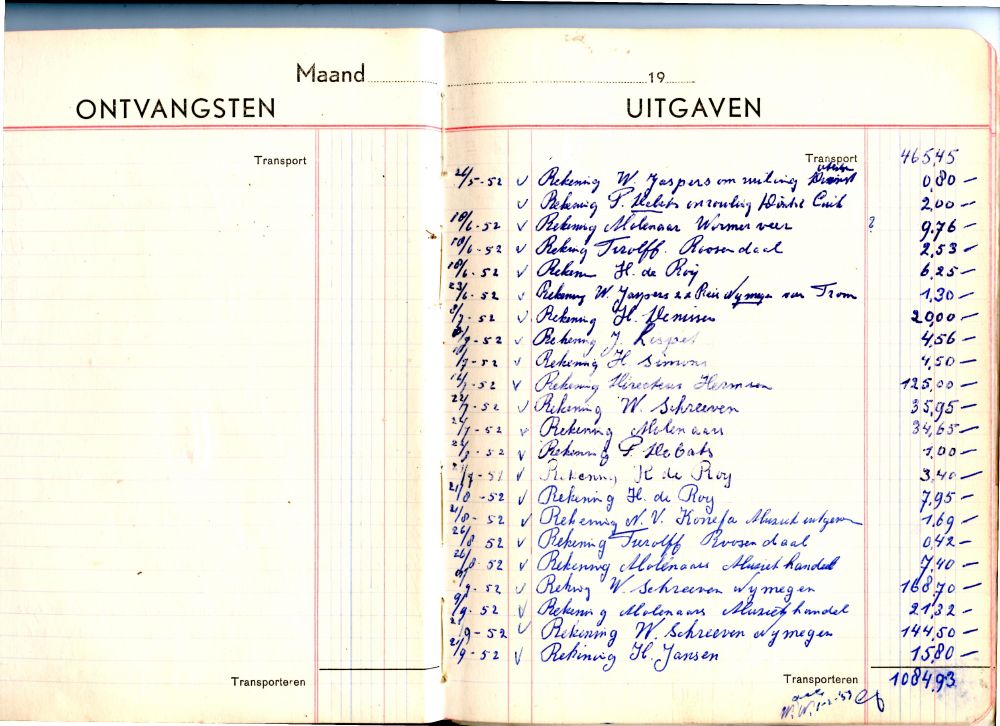 Maand
ONTVANGSTEN
Transport
Transporteren
19
UITGAVEN
Transport 465,45
26/5-52 v Rekening W. Jaspers om ruiling 0,80 -
v Rekening P. Debets 2,00 -
18/6-52 v Rekening Molenaar Wormerveer ? 9,76 -
18/6-52 v Reking Tierolff Roosendaal 2,53 -
18/6-52 v Rekem H. de Roy 6,25 -
23/6-52 v Rekening W. Jaspers Reis Nymegen van Trom 1,30 -
/7-52 v Rekening H. Denissen 20,00 -
/7-52 v Rekening J. 4,56 -
/7-52 v Rekening H. Simons 4,50 -
/7-52 v Rekening Directeur Hermsen 125,00 -
22/7-52 v Rekening W. Schreeven 35,95 -
/7-52 v Rekening Molenaars 34,65 -
v Rekening P. Debats 1,00 -
v Rekening K de Roy 3,40 -
21/8-52 v Rekening H. de Roy 7,95 -
21/8-52 v Rekening N.V. Konefa Muziek uitgeven 1,69 -
26/8 52 v Rekening Tierolff Roosendaal 0,42 -
26/8-52 v Rekening Molenaars Muziekhandel 7,40 -
/9-52 v Reking W. Schreeven Nymegen 168,70 -
9/9-52 v Rekening Molenaars Muziekhandel 21,32 -
/9-52 v Rekening W. Schreeven Nymegen 144,50 -
/9-52 v Rekening H. Jansen 15,80 -
Transporteren 1084,93